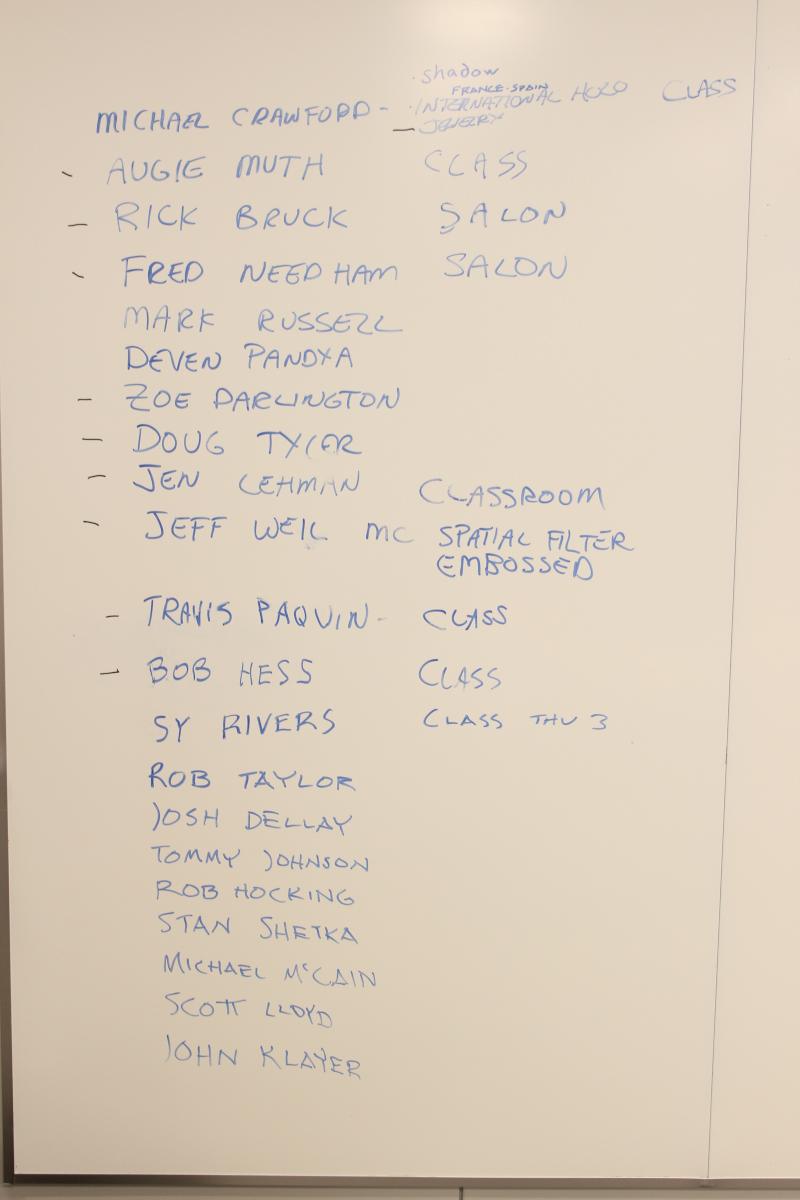 · shadow
FRANCE-SPAIN
MICHAEL CRAWFORD - · INTERNATIONAL HOLO CLASS
— JEWELRY
- AUGIE MUTH CLASS
- RICK BRUCK SALON
- FRED NEEDHAM SALON
MARK RUSSELL
DEVEN PANDYA
- ZOE DARLINGTON
- DOUG TYLER
- JEN LEHMAN CLASSROOM
- JEFF WEIL MC SPATIAL FILTER
EMBOSSED
- TRAVIS PAQUIN - CLASS
- BOB HESS CLASS
SY RIVERS CLASS THU 3
ROB TAYLOR
JOSH DELLAY
TOMMY JOHNSON
ROB HOCKING
STAN SHETKA
MICHAEL McCAIN
SCOTT LLOYD
JOHN KLAYER